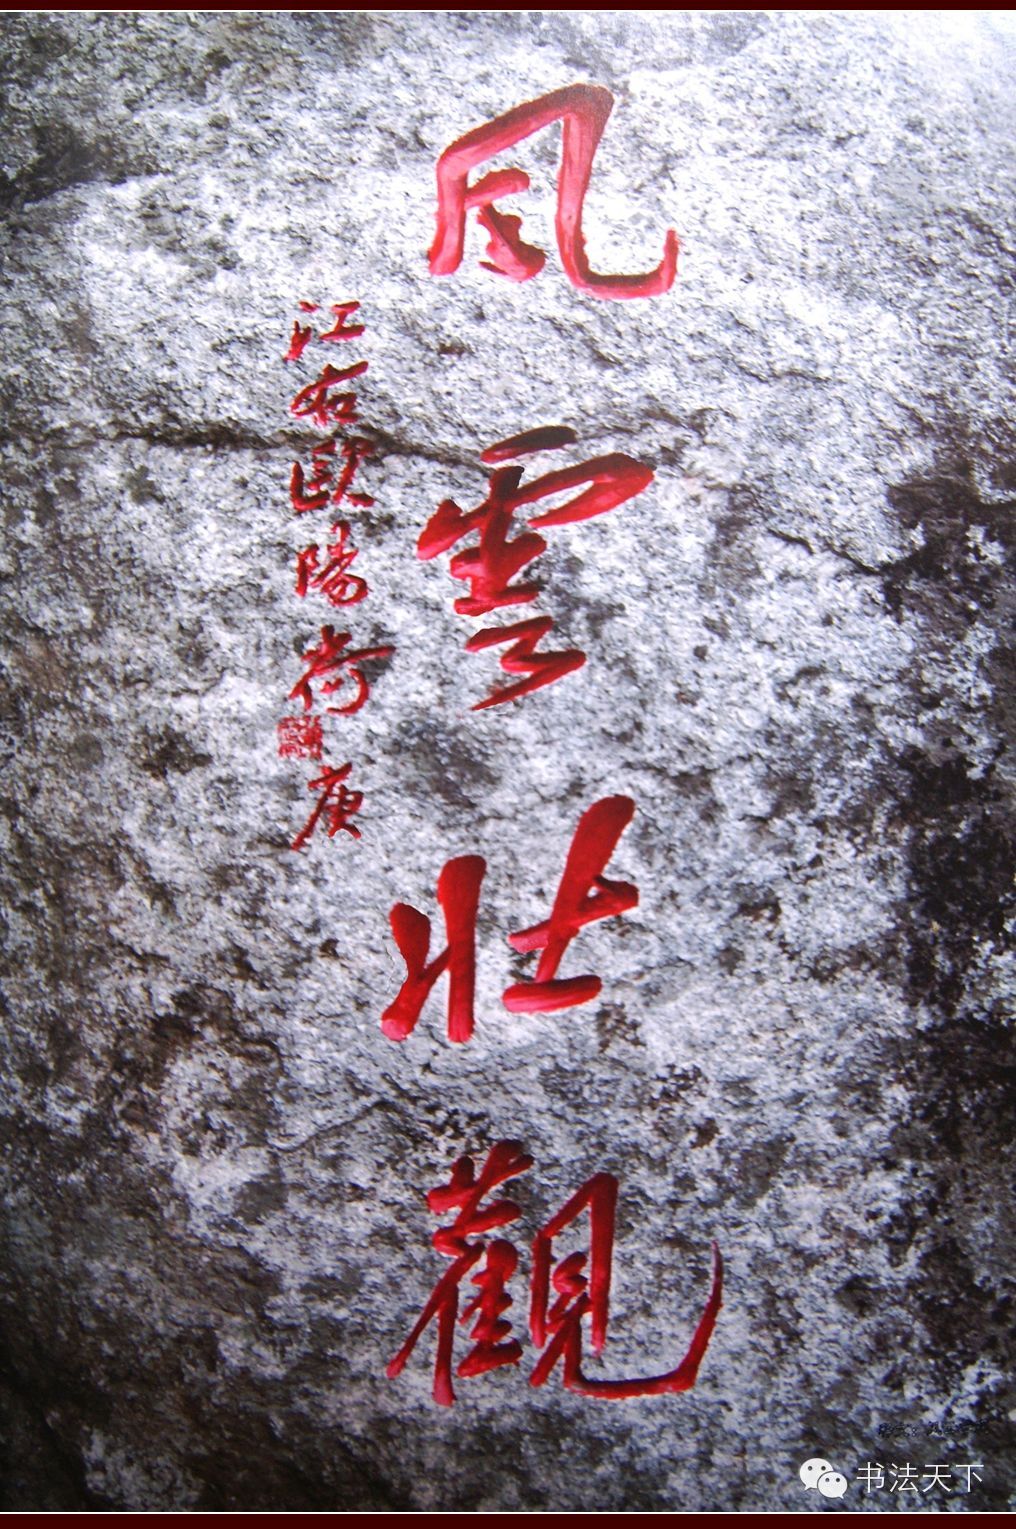 风雲壯觀
江右歐陽荷庚
书法天下